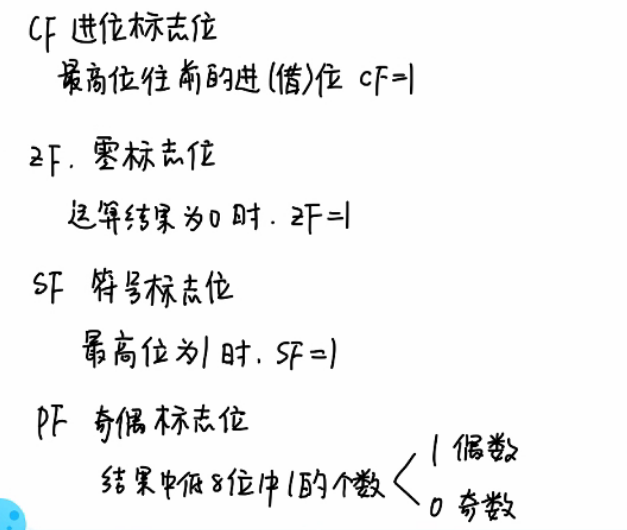 CF 进位标志位
最高位往前的进(借)位 CF=1
ZF. 零标志位
运算结果为0时. ZF=1
SF 符号标志位
最高位为1时. SF=1
PF 奇偶标志位
结果中低8位中1的个数 < 1 偶数
0 奇数